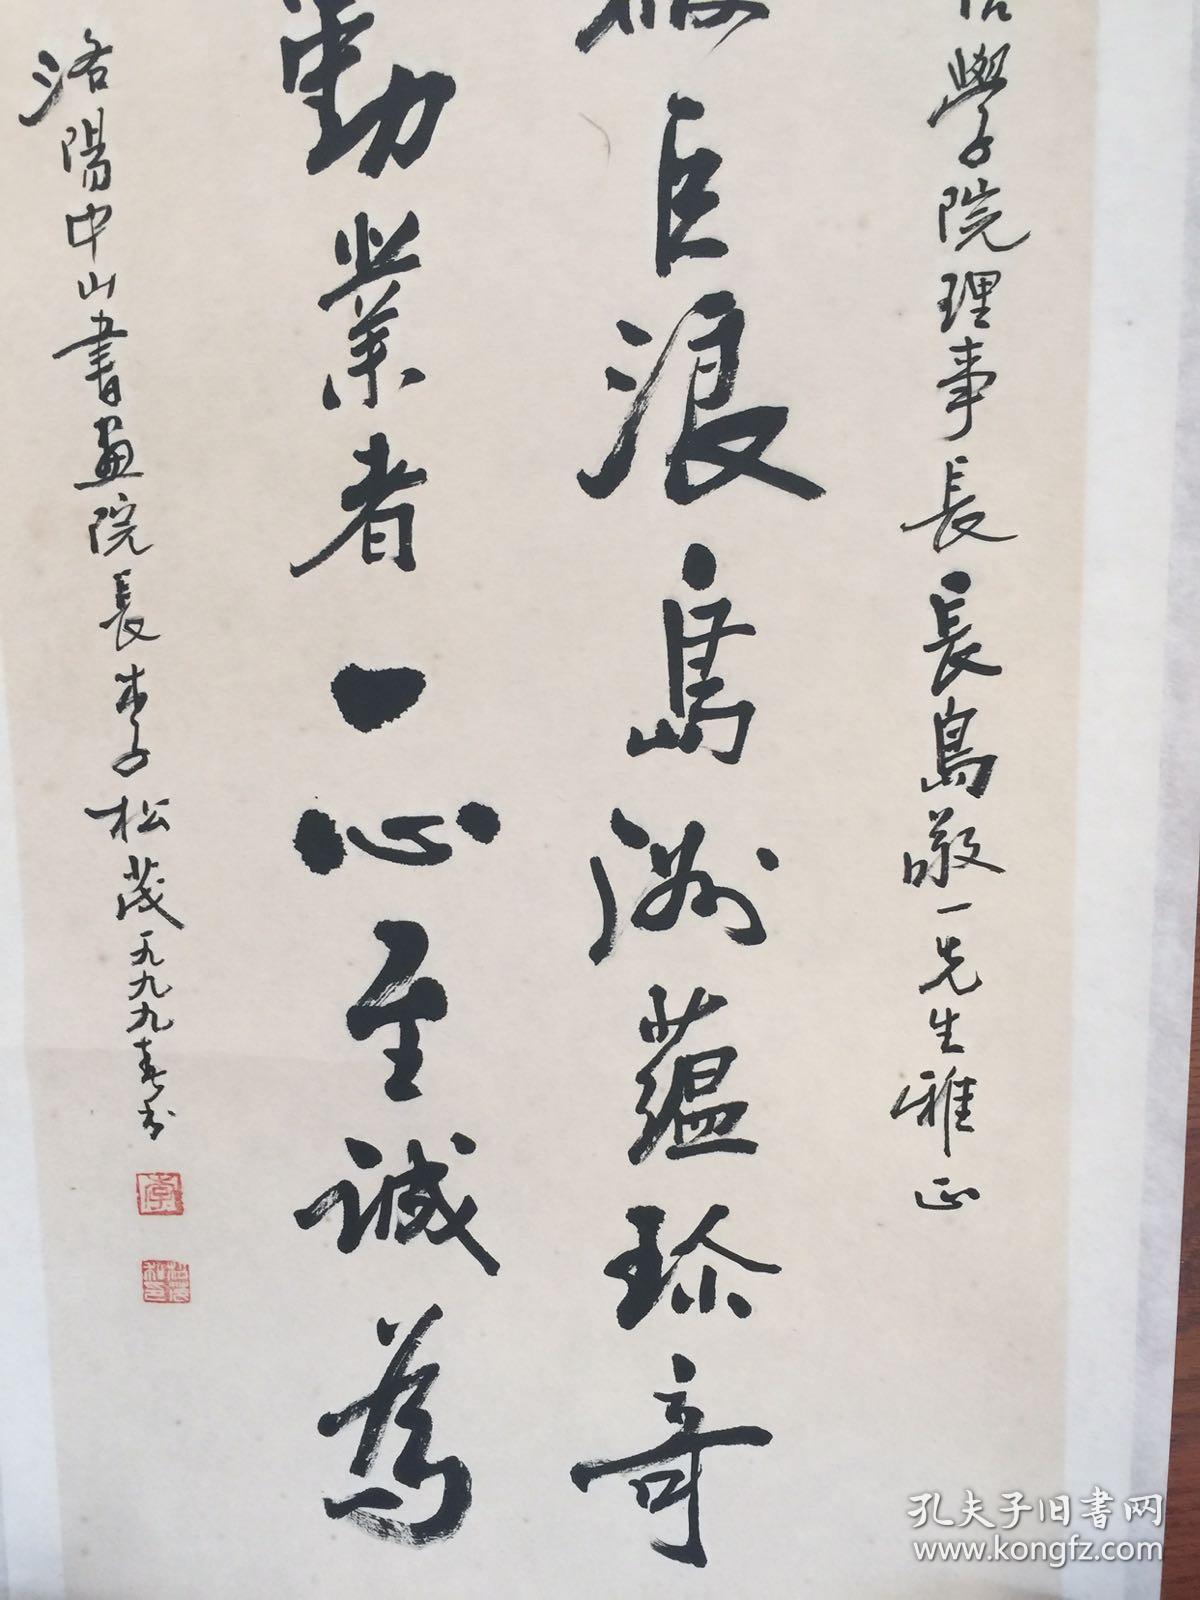 學院理事長長島敬一先生雅正
巨浪島洲蘊珍奇
業者一心至誠為
洛陽中山書畫院長李松茂一九九九春書
李
孔夫子旧书网
www.kongfz.com